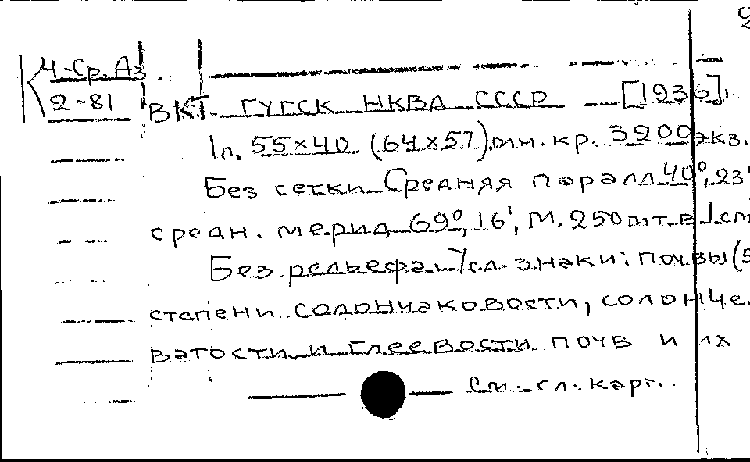 К 4-Ср. Аз.
2-81
ВКТ ГУГСК НКВД СССР [1936].
1л. 55х40 (64х57) мн. кр. 3200 экз.
Без сетки Средняя паралл 40°, 23'
средн. мерид 69°, 16', М. 250 м т. в 1 см
Без рельефа. Усл. знаки: почвы (5
степени солончаковости, солонце-
ватости и глеевости почв и их
См. сл. карт.